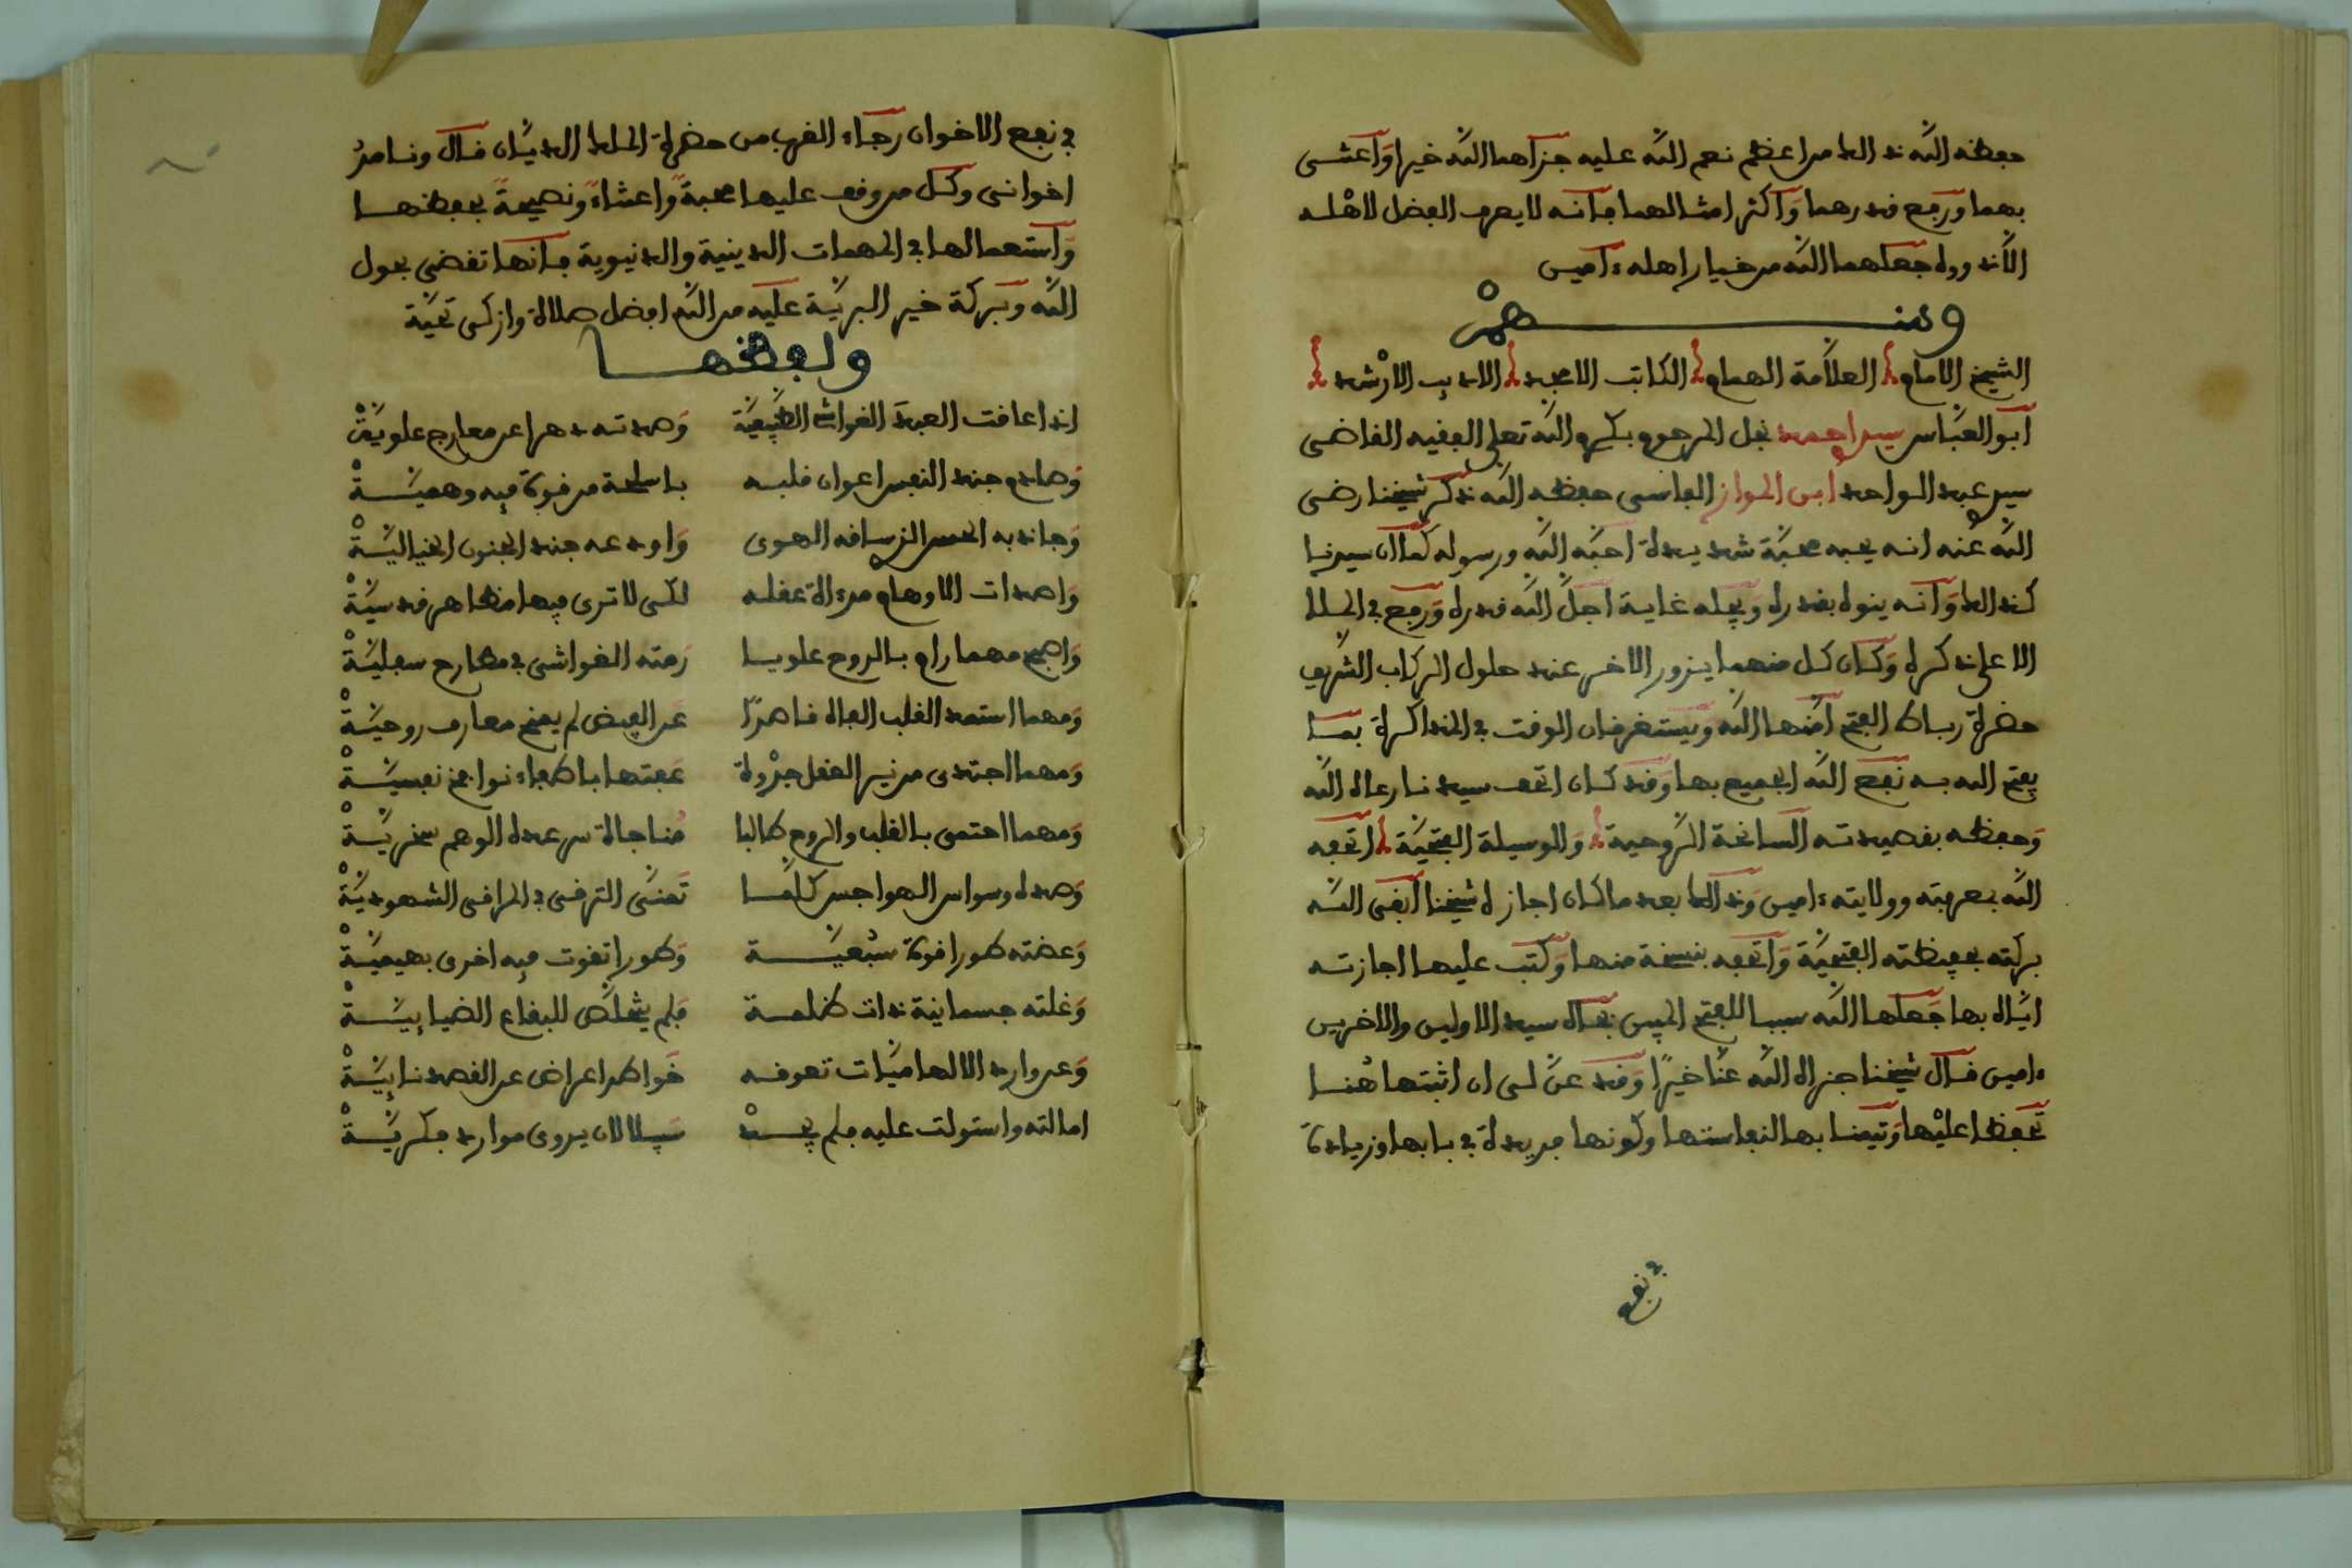 حفظه الله ذلك من اعظم نعم الله عليه جزاهما الله خيرا واعتنى
بهما ورفع قدرهما واكثر امثالهما فانه لا يعرف الفضل لاهله
الا ذووه جعلهما الله من خيار اهله ءامين
ومنهم
الشيخ الامام العلامة الهمام الكاتب الامجد الاديب الارشد
ابو العباس سيدي احمد نجل المرحوم بكرم الله تعلى الفقيه القاضي
سيدي عبد الواحد ابن المواز الفاسي حفظه الله ذكر شيخنا رضي
الله عنه انه يحبه محبة شديدة احبه الله ورسوله كما ان سيدنا
كذلك وانه ينوه بقدره ويجله غاية اجل الله قدره ورفع في الملإ
الاعلى ذكره وكان كل منهما يزور الاخر عند حلول الركاب الشريف
حضرة رباط الفتح امنها الله ويستغرقان الوقت في المذاكرة بما
يفتح الله به نفع الله الجميع بها وقد كان اتحف سيدنا رعاه الله
وحفظه بقصيدته السانحة الروحية والوسيلة الفتحية اتحفه
الله بمعرفته وولايته ءامين وذلك بعد ما كان اجازه شيخنا ابقى الله
بركته بحفيظته الفتحية واتحفه بنسخة منها وكتب عليها اجازته
اياه بها جعلها الله سببا للفتح المبين بجاه سيد الاولين والاخرين
ءامين قال شيخنا جزاه الله عنا خيرا وقد عن لي ان اثبتها هنا
تحفظا عليها وتيمنا بها لنفاستها وكونها فريدة في بابها وزيادة
في نفع
في نفع الاخوان رجاء القرب من حضرة الملك الديان قال ونامر
اخواني وكل من وقف عليها محبة واعتناء ونصيحة بحفظها
واستعمالها في المهمات الدينية والدنيوية فانها تقضى بحول
الله وبركة خير البرية عليه من الله افضل صلاة وازكى تحية
ولفظها
اذا عاقت العبد الغواشي الطبيعية وصدته دهرا عن معارج علوية
وصادم جند النفس اعوان قلبه باسلحة من قوة فيه وهمية
وجاذبه الحس الذي ساقه الهوى واودعه جند الجنون الخيالية
واصدات الاوهام مرءاة عقله لكي لا ترى فيها مظاهر قدسية
واصبح مهما رام بالروح علويا رمته الغواشي في مطارح سفلية
ومهما استمد القلب الفاه قاصرا عن الفيض لم يمنح معارف روحية
ومهما اجتدى من نير العقل جذوة عفتها باطفاء نوافح نفسية
ومهما احتمى بالقلب والروح طالبا مناجاة سر عده الوهم سخرية
وصده وسواس الهواجس كلما تمنى الترقي في المراقي الشهودية
وعضته طورا قوة سبعية وطورا تقوت فيه اخرى بهيمية
وغلته جسمانية ذات ظلمة فلم يتخلص للبقاع الضيائية
وعن وارد الالهاميات تعوقه خواطر اعراض عن القصد نائية
امالته واستولت عليه فلم يجد سبيلا لان يروى موارد فكرية